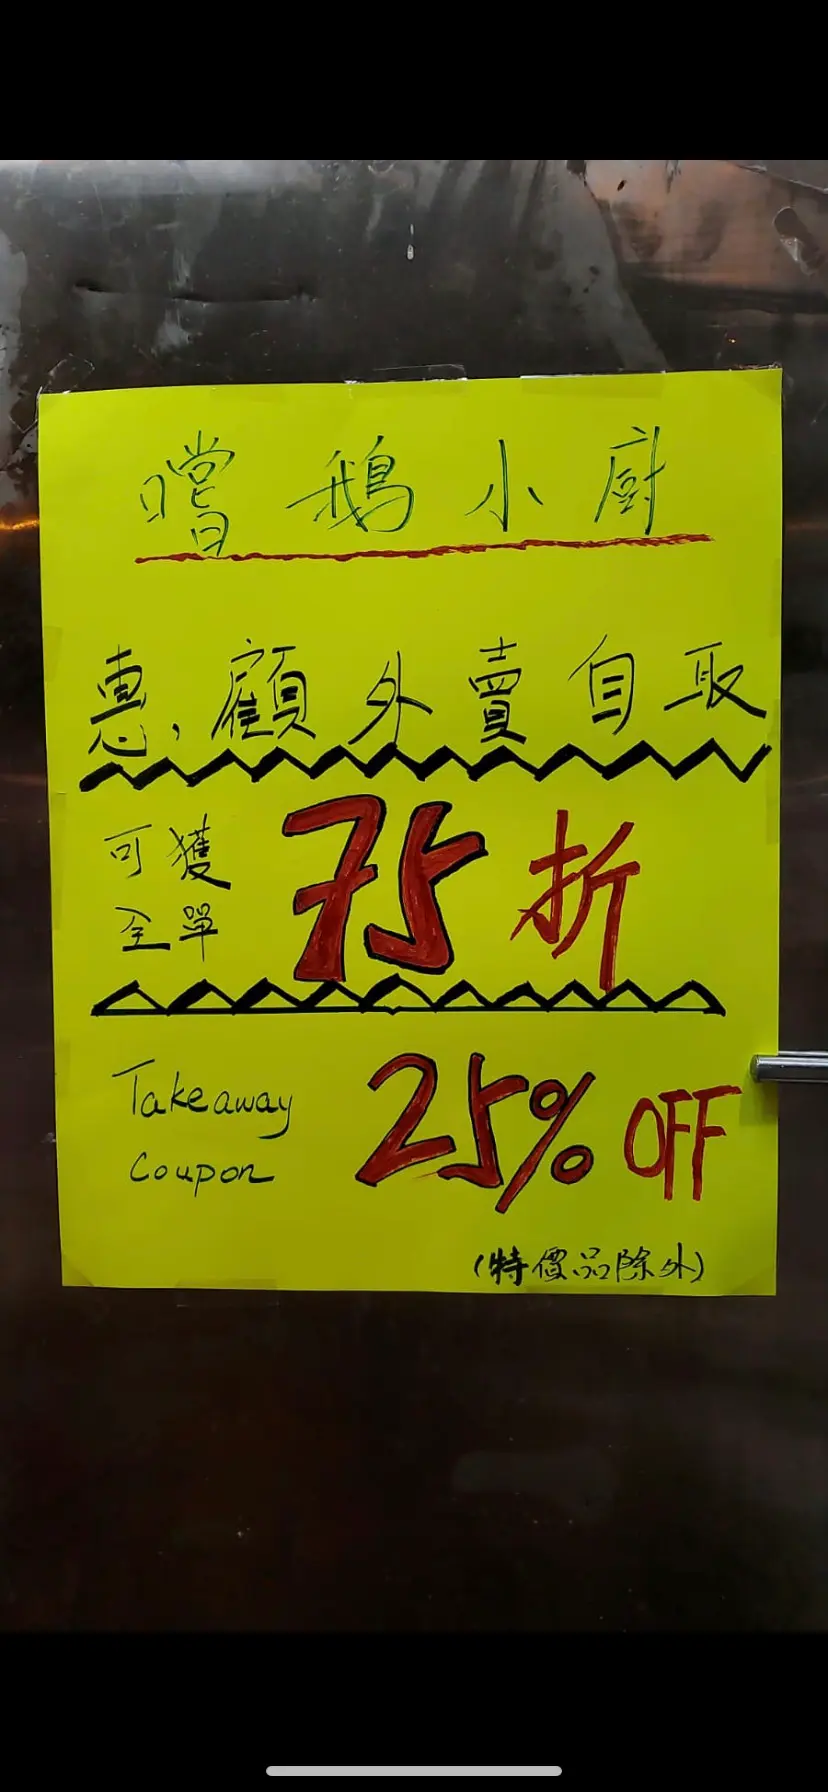 嚐鵝小廚
惠顧外賣自取
可獲
全單
75折
Takeaway
Coupon
25% OFF
(特價品除外)